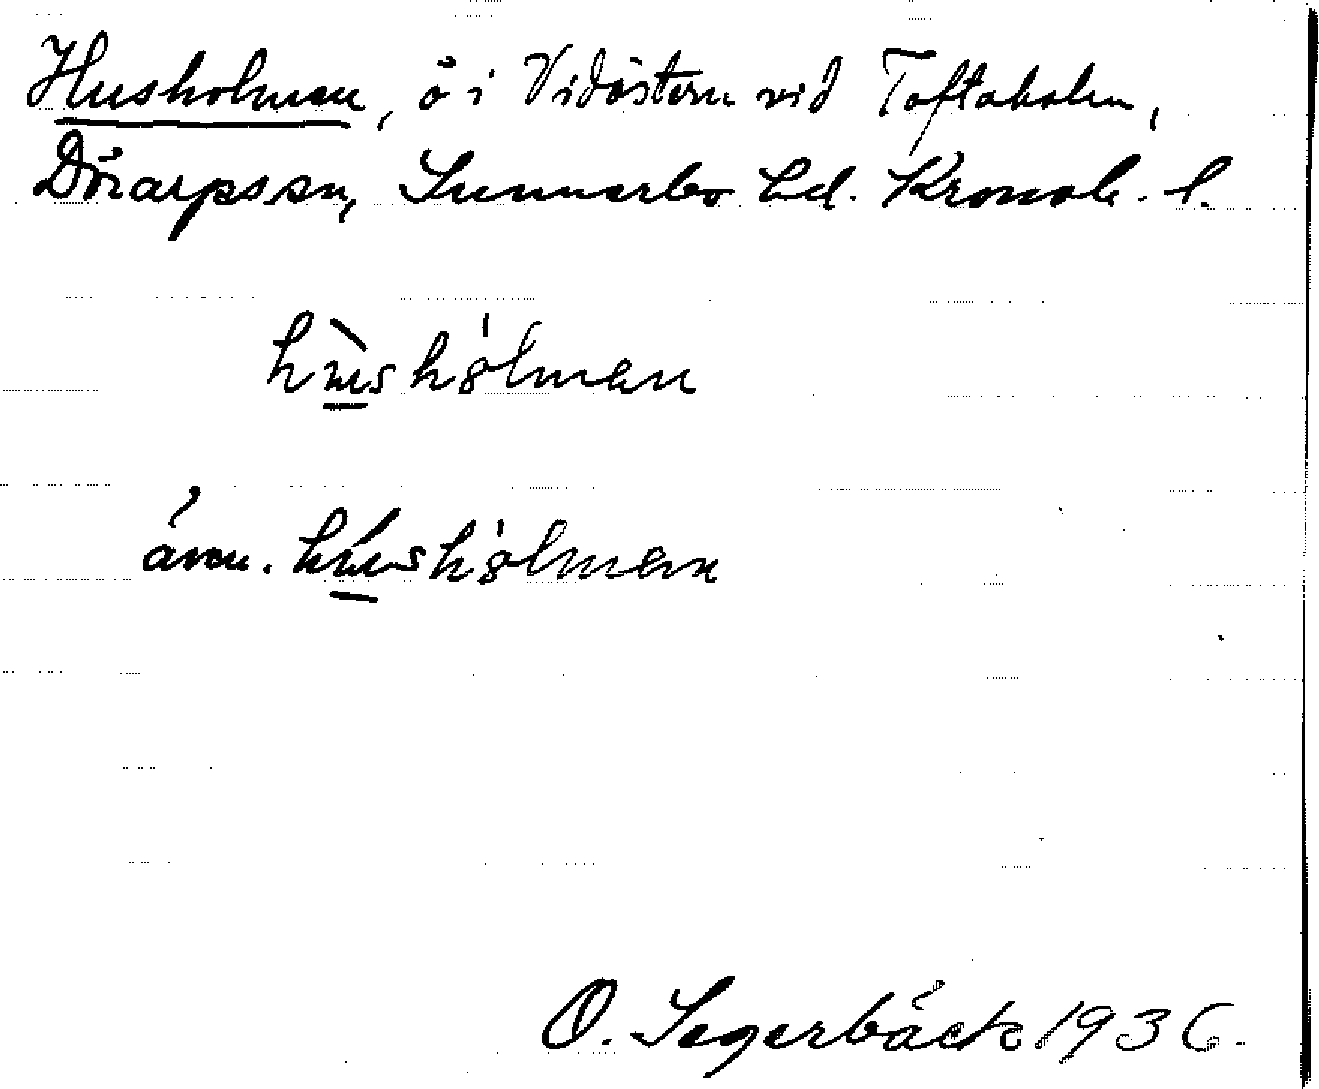 Husholmen, ö i Vidöstern vid Toftaholm,
Dörarps sn, Sunnerbo hd. Kronob. l.
hùshólman
även. húshólman
O. Segerbäck 1936.